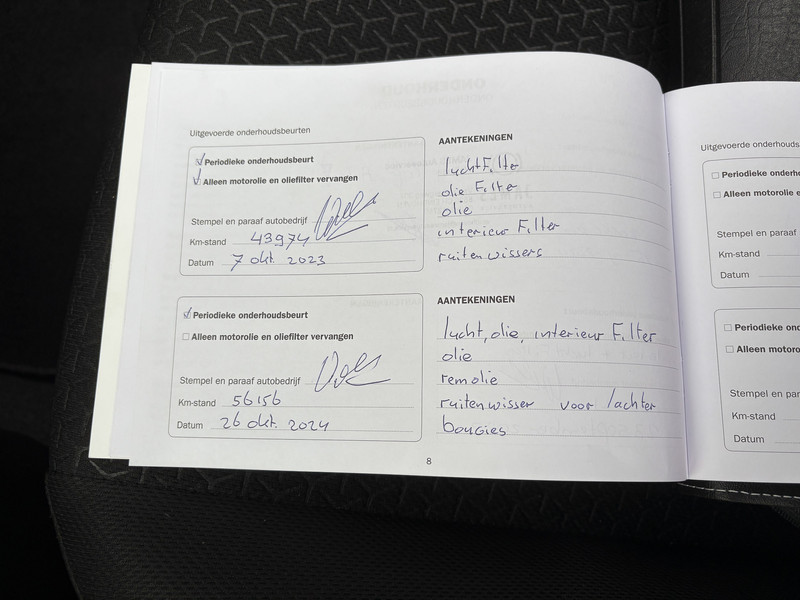 Uitgevoerde onderhoudsbeurten
Periodieke onderhoudsbeurt
Alleen motorolie en oliefilter vervangen
Stempel en paraaf autobedrijf
Km-stand 43974
Datum 7 okt. 2023
AANTEKENINGEN
luchtFilter
olie Filter
olie
interieur Filter
ruitenwissers
Periodieke onderhoudsbeurt
Alleen motorolie en oliefilter vervangen
Stempel en paraaf autobedrijf
Km-stand 56156
Datum 26 okt. 2024
AANTEKENINGEN
lucht, olie, interieur Filter
olie
remolie
ruitenwisser voor /achter
bougies
8
Uitgevoerde onderhouds
Periodieke onderh
Alleen motorolie e
Stempel en paraaf
Km-stand
Datum
Periodieke ond
Alleen motoro
Stempel en par
Km-stand
Datum